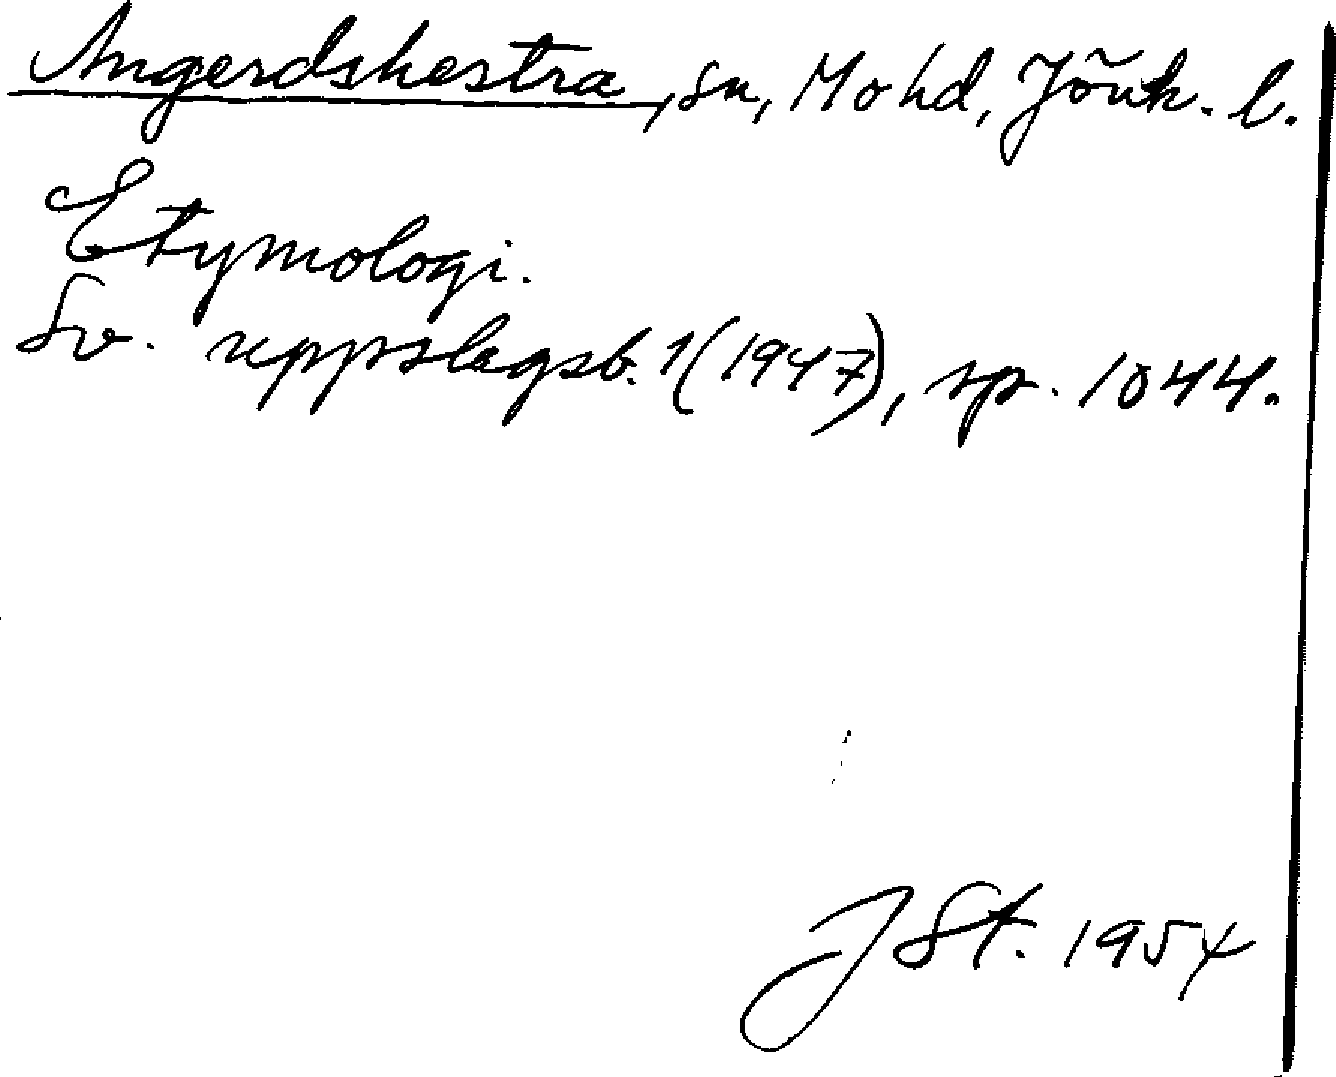 Angerdshestra, sn, Mo hd, Jönk. l.
Etymologi.
Sv. uppslagsb. 1 (1947), sp. 1044.
JSt. 1954